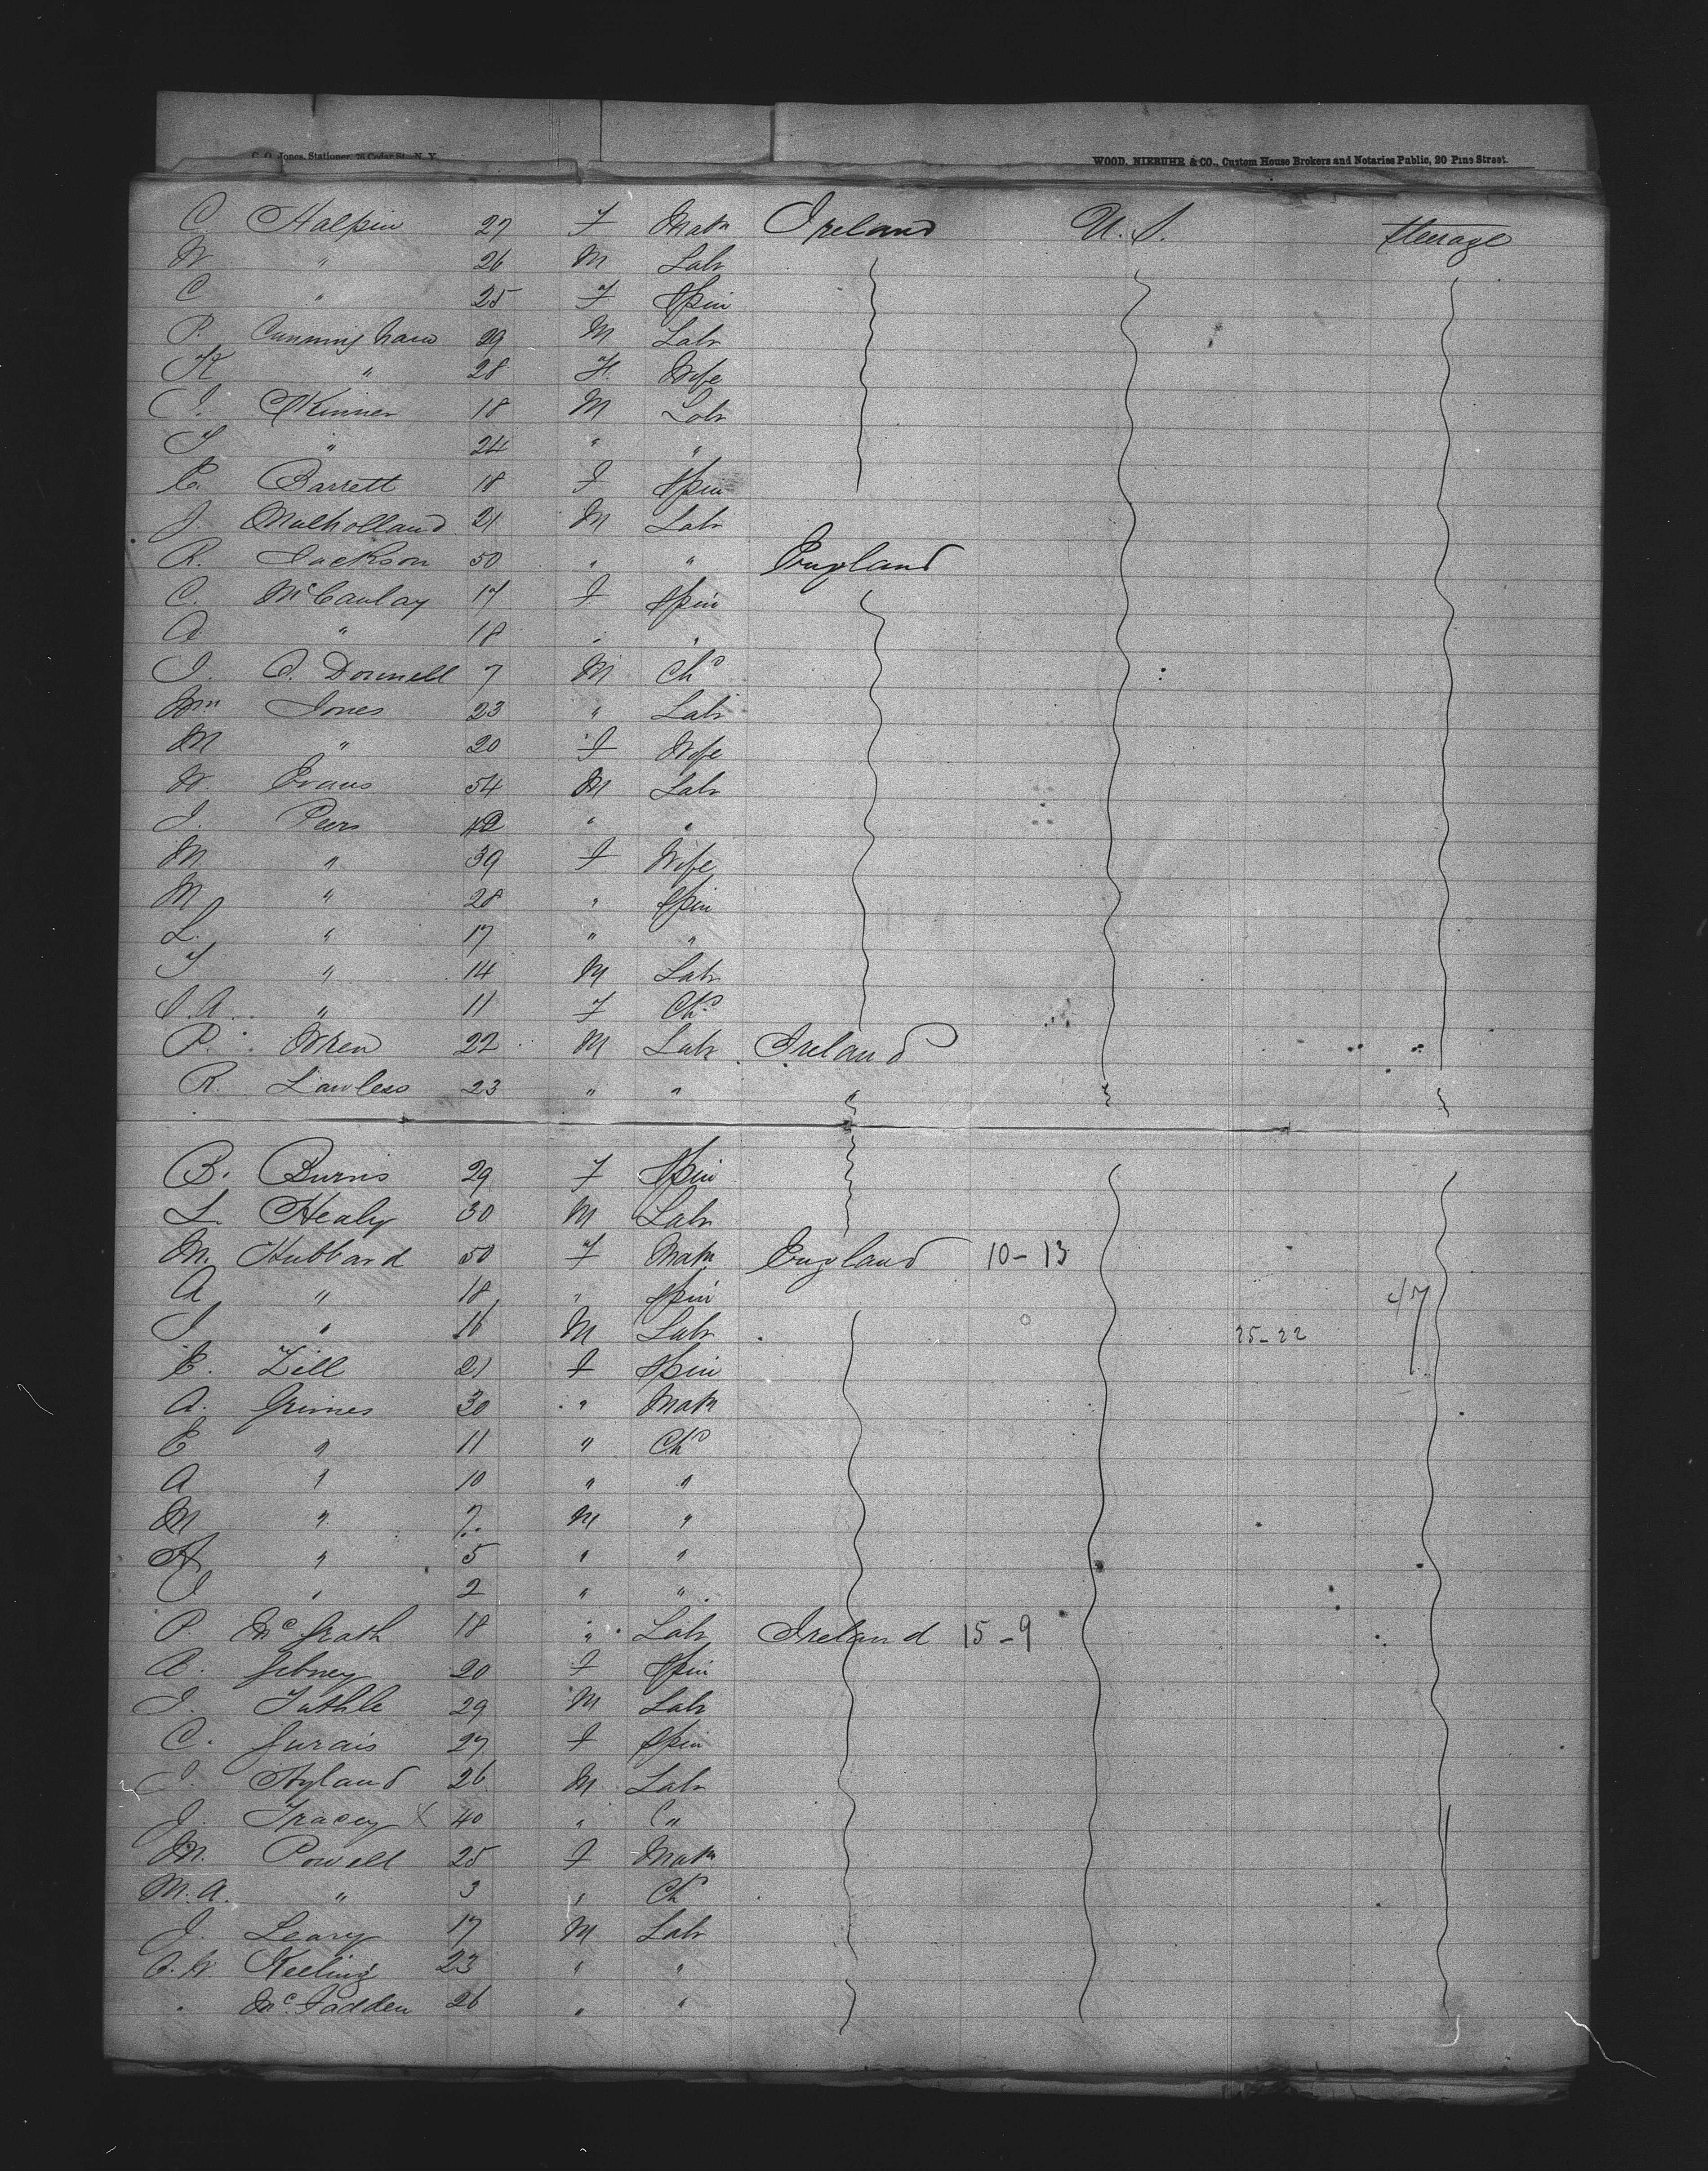 C. O. Jones, Stationer, 76 Cedar St., N. Y.
WOOD, NIEBUHR & CO., Custom House Brokers and Notaries Public, 20 Pine Street.
C Halpin 27 F Matn Ireland U.S. Steerage
W " 26 M Labr
C " 25 F Spin
P. Cunningham 29 M Labr
K " 28 F. Wife
J. Skinner 18 M Labr
T " 24 " "
E. Barrett 18 F Spin
J. Mulholland 21 M Labr
R. Jackson 50 " " England
C. McCaulay 17 F Spin
A " 18 " "
J. O. Donnell 7 M Chd
Wm Jones 23 " Labr
M " 20 F Wife
W. Evans 54 M Labr
J. Peers 42 " "
M " 39 F Wife
M " 28 " Spin
L. " 17 " "
T " 14 M Labr
S.A. " 11 F Chd
P. Wren 22 M Labr Ireland
R. Lawless 23 " " "
B. Burns 29 F Spin
L. Healy 30 M Labr
M. Hubbard 50 F Matn England 10-13
A " 18 " Spin 47
J " 16 M Labr 25-22
E. Zill 21 F Spin
A. Grimes 30 " Matn
E " 11 " Chd
A " 10 " "
M " 7 M "
A " 5 " "
J " 2 " "
P. McGrath 18 " Labr Ireland 15-9
A. Gibney 20 F Spin
J. Tuthle 29 M Labr
C. 27 F Spin
J. Hyland 26 M Labr
J. Tracey X 40 " "
M. Powell 25 F Matn
M.A. " 3 " Chd
J. Leary 17 M Labr
Keeling 23 " "
" McFadden 26 " "